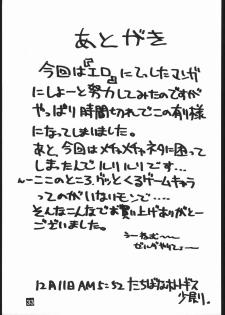 あとがき
今回は『エロ』にてっしたマンガ
にしよーと努力してみたのですが
やっぱり時間切れでこの有り様
になってしまいました。
あと、今回はメチャメチャネタに困って
しまったんでルリルリです…
ここのところ、グッとくるゲームキャラ
ってのがいないモンで…
そんなこんなでお買い上げありがとー
ございました。
うーねむ〜
ゼルダやりてぇー
12月11日AM5:52 たちばなホトトギス
33